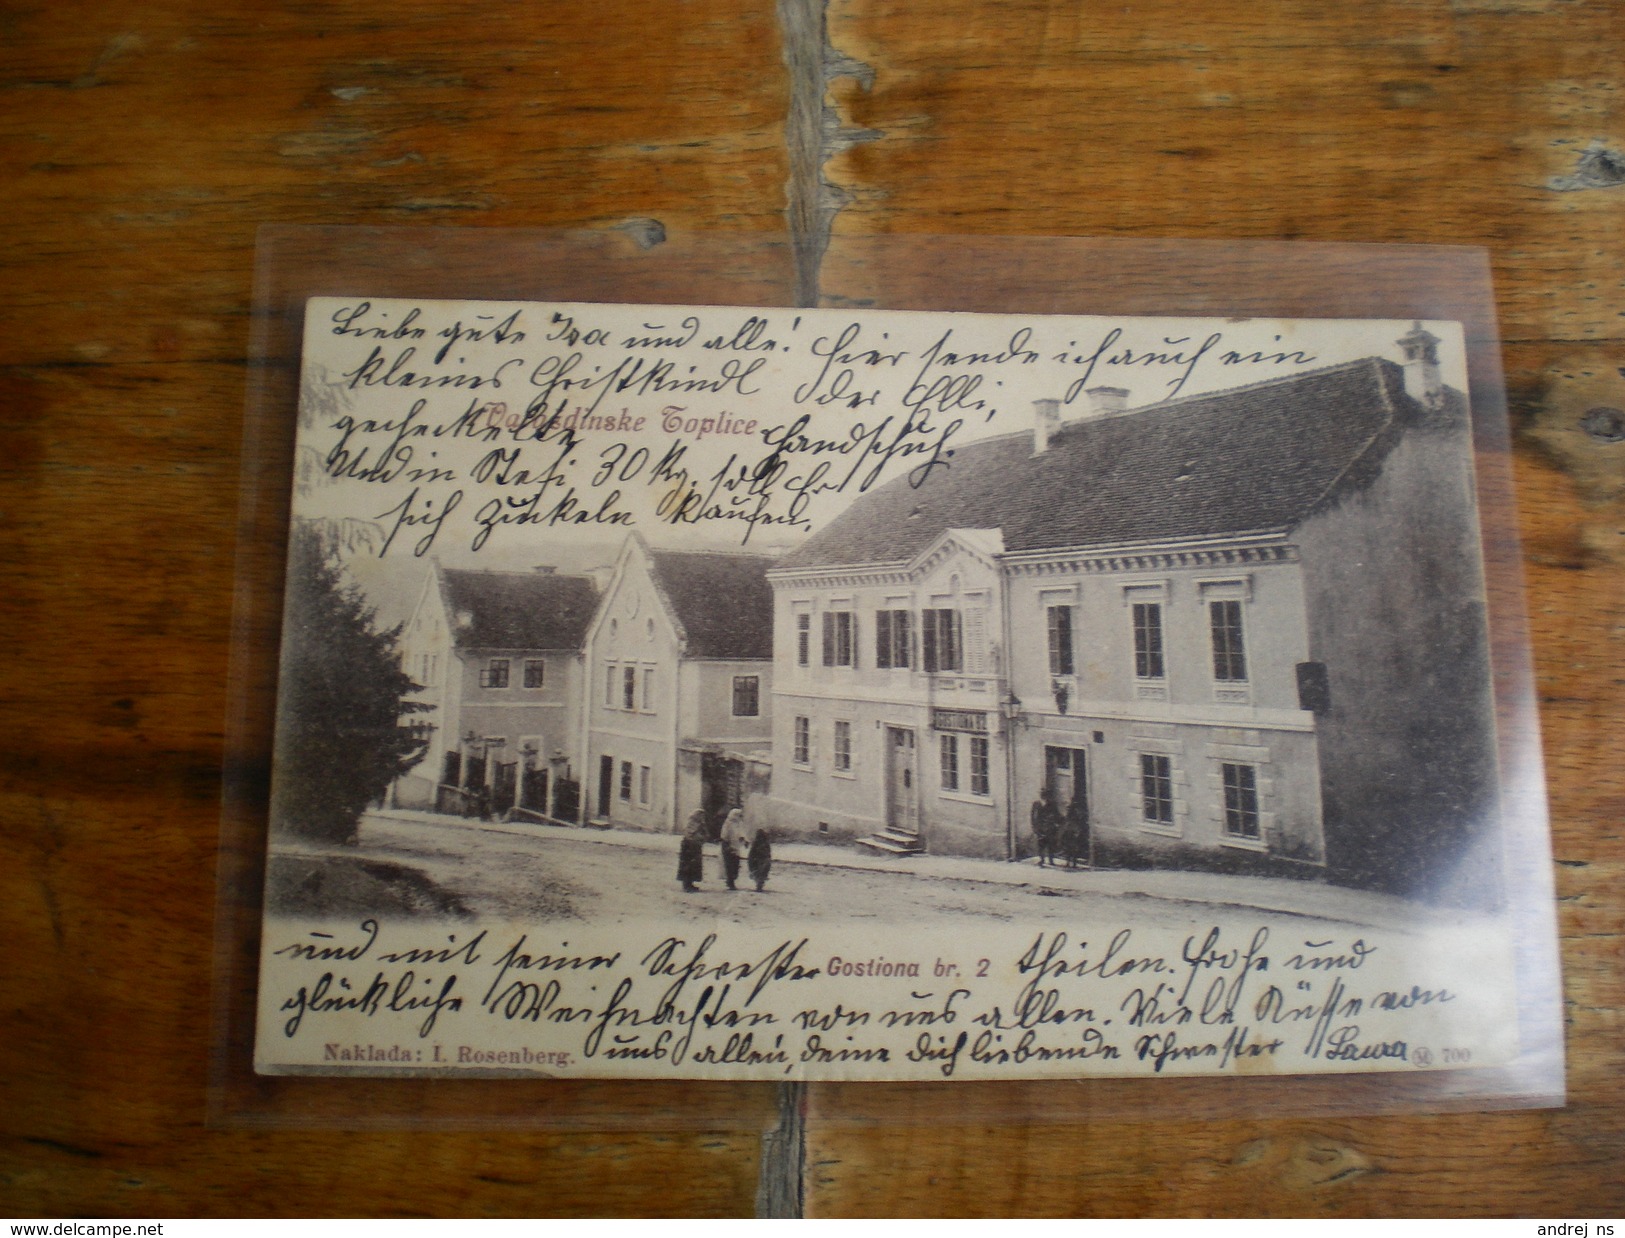 Liebe gute Isa und alle! Hier sende ich auch ein
kleines Christkindl der Elli,
Varasdinske Toplice
gehäckelte Handschuh.
Und in Stefi 30 Kr. soll er
sich kaufen,
GOSTIONA
und mit seiner Schwester theilen. Frohe und
Gostiona br. 2
glückliche Weihnachten von uns allen. Viele Küsse von
uns allen, deine dich liebende Schwester Laura
Naklada: I. Rosenberg.
M 700
www.delcampe.net
andrej ns